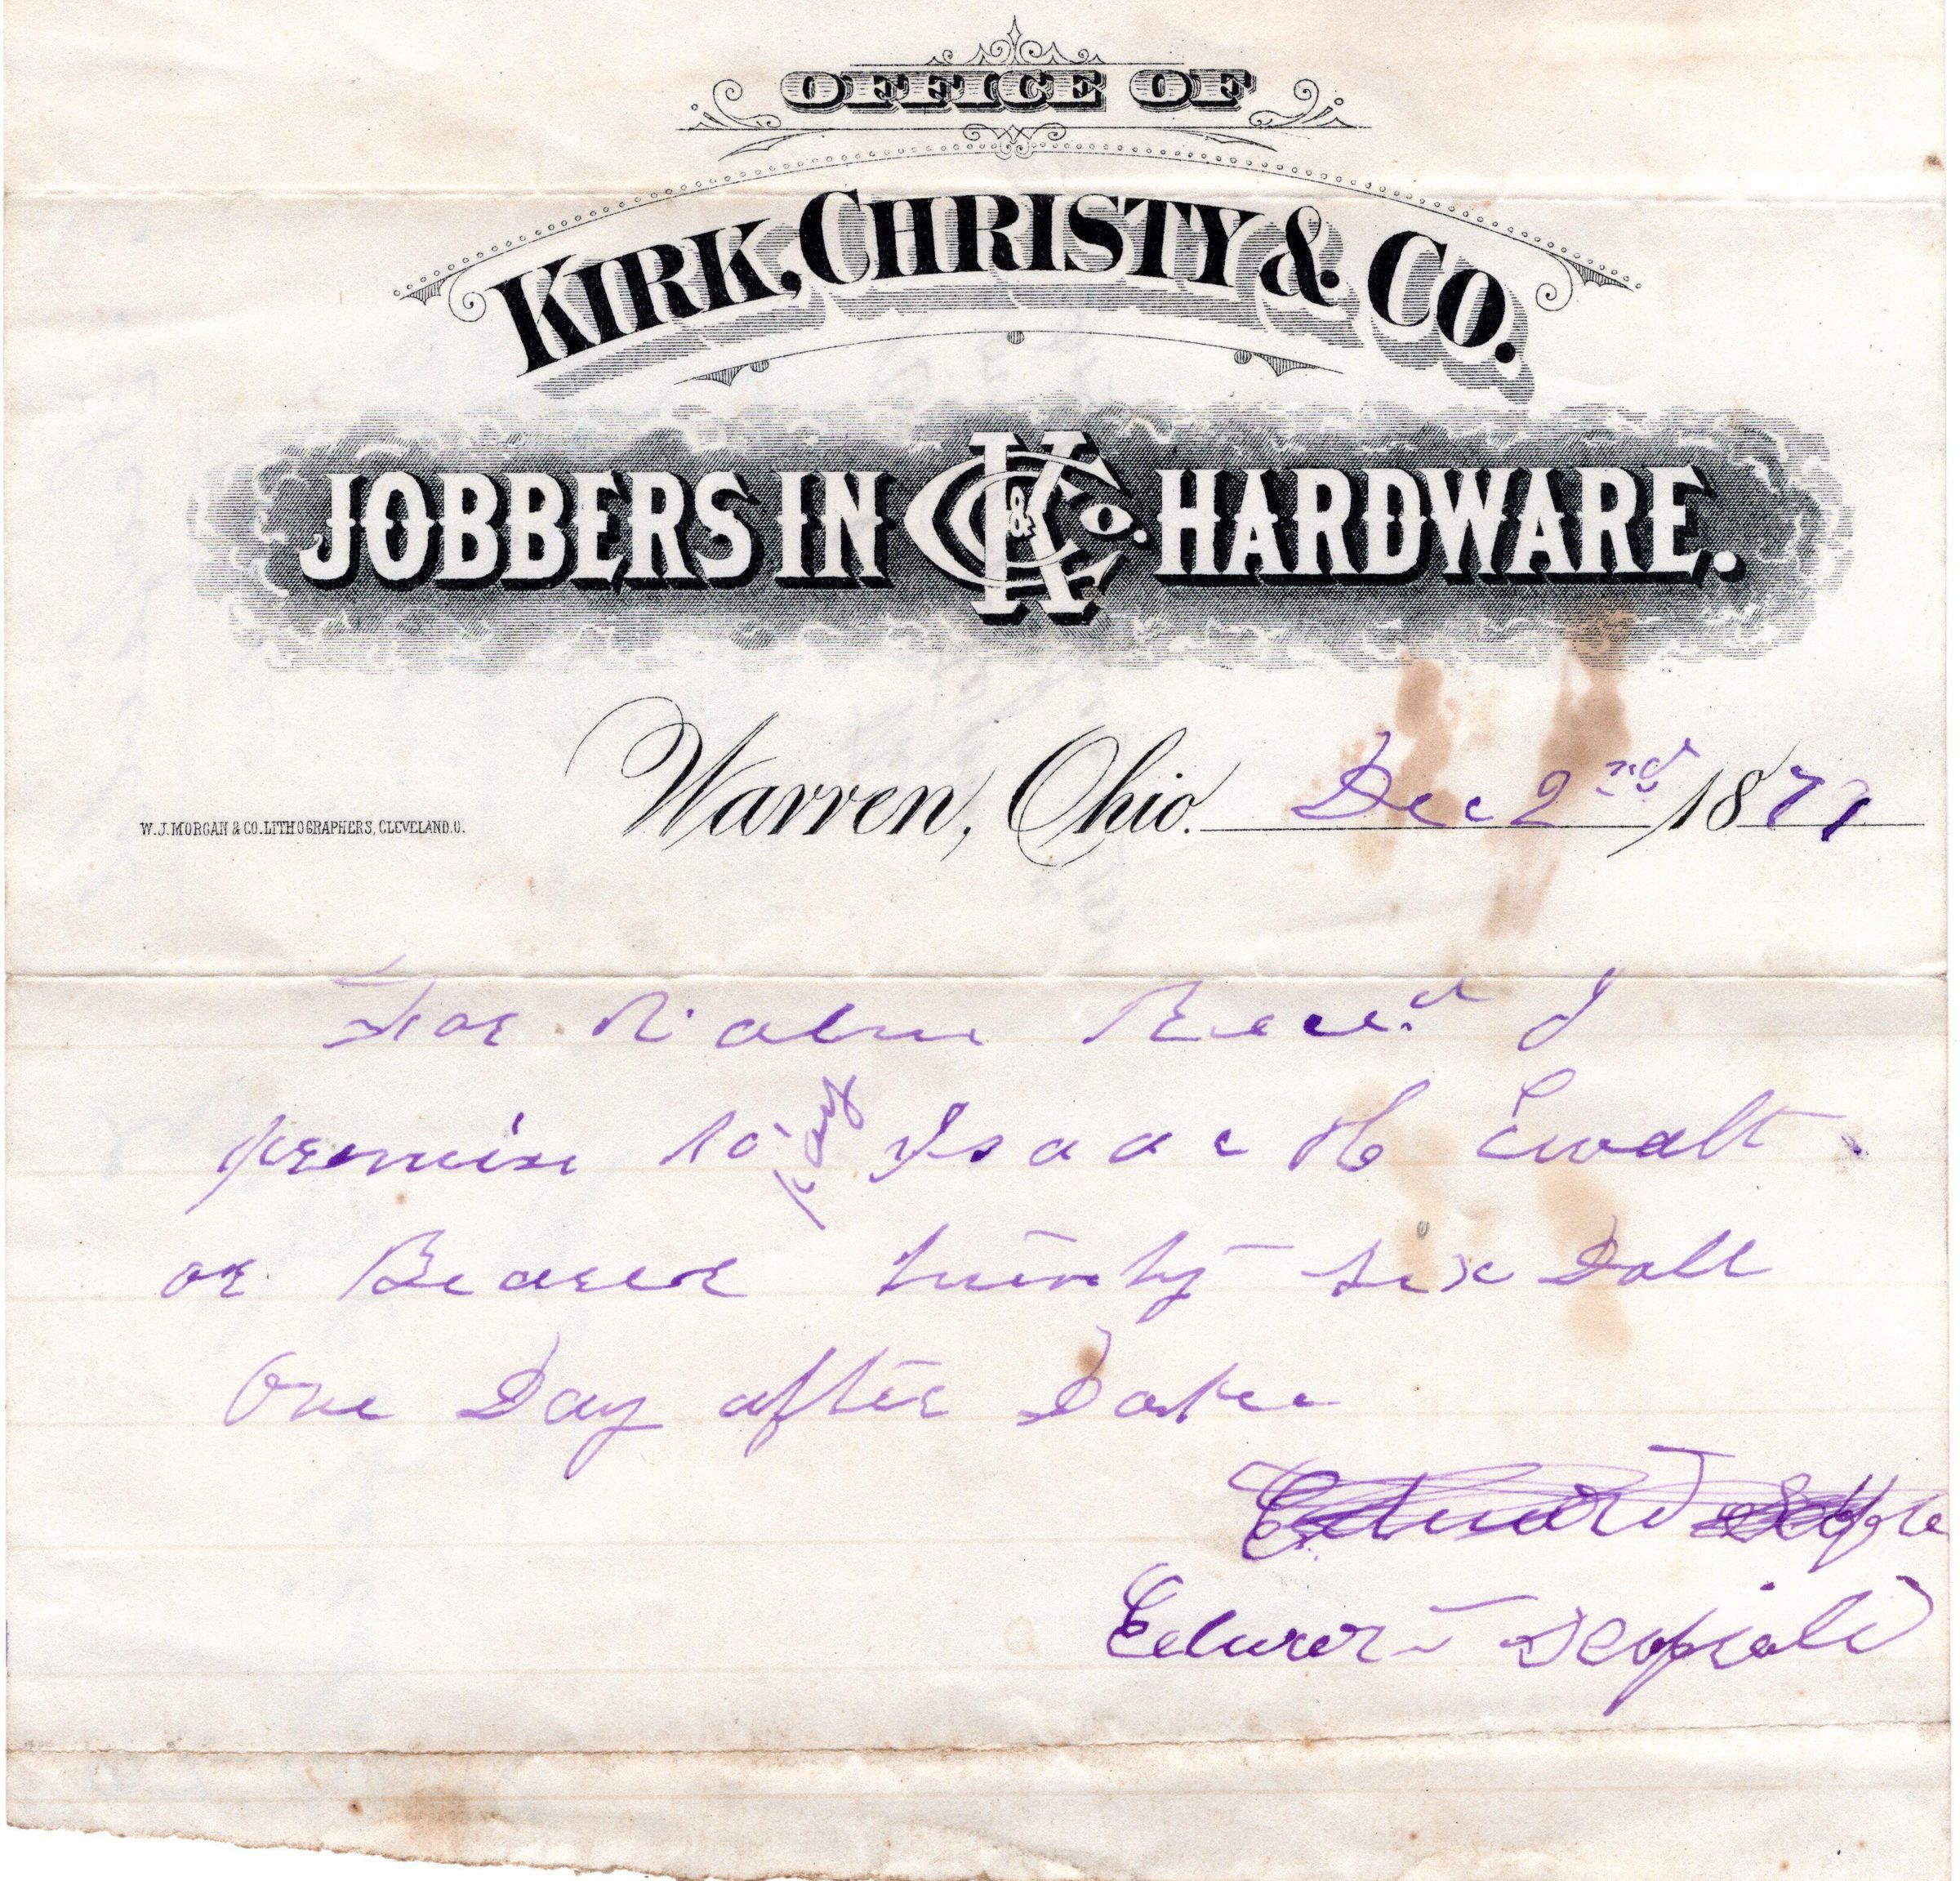 OFFICE OF
KIRK, CHRISTY & CO.
JOBBERS IN K C & Co. HARDWARE.
W. J. MORGAN & CO. LITHOGRAPHERS, CLEVELAND, O.
Warren, Ohio. Dec 2nd 1877
For Value Recd I
promise to pay Isaac H Ewalt
or Bearer twenty six Doll
One Day after Date
Edward
Edward